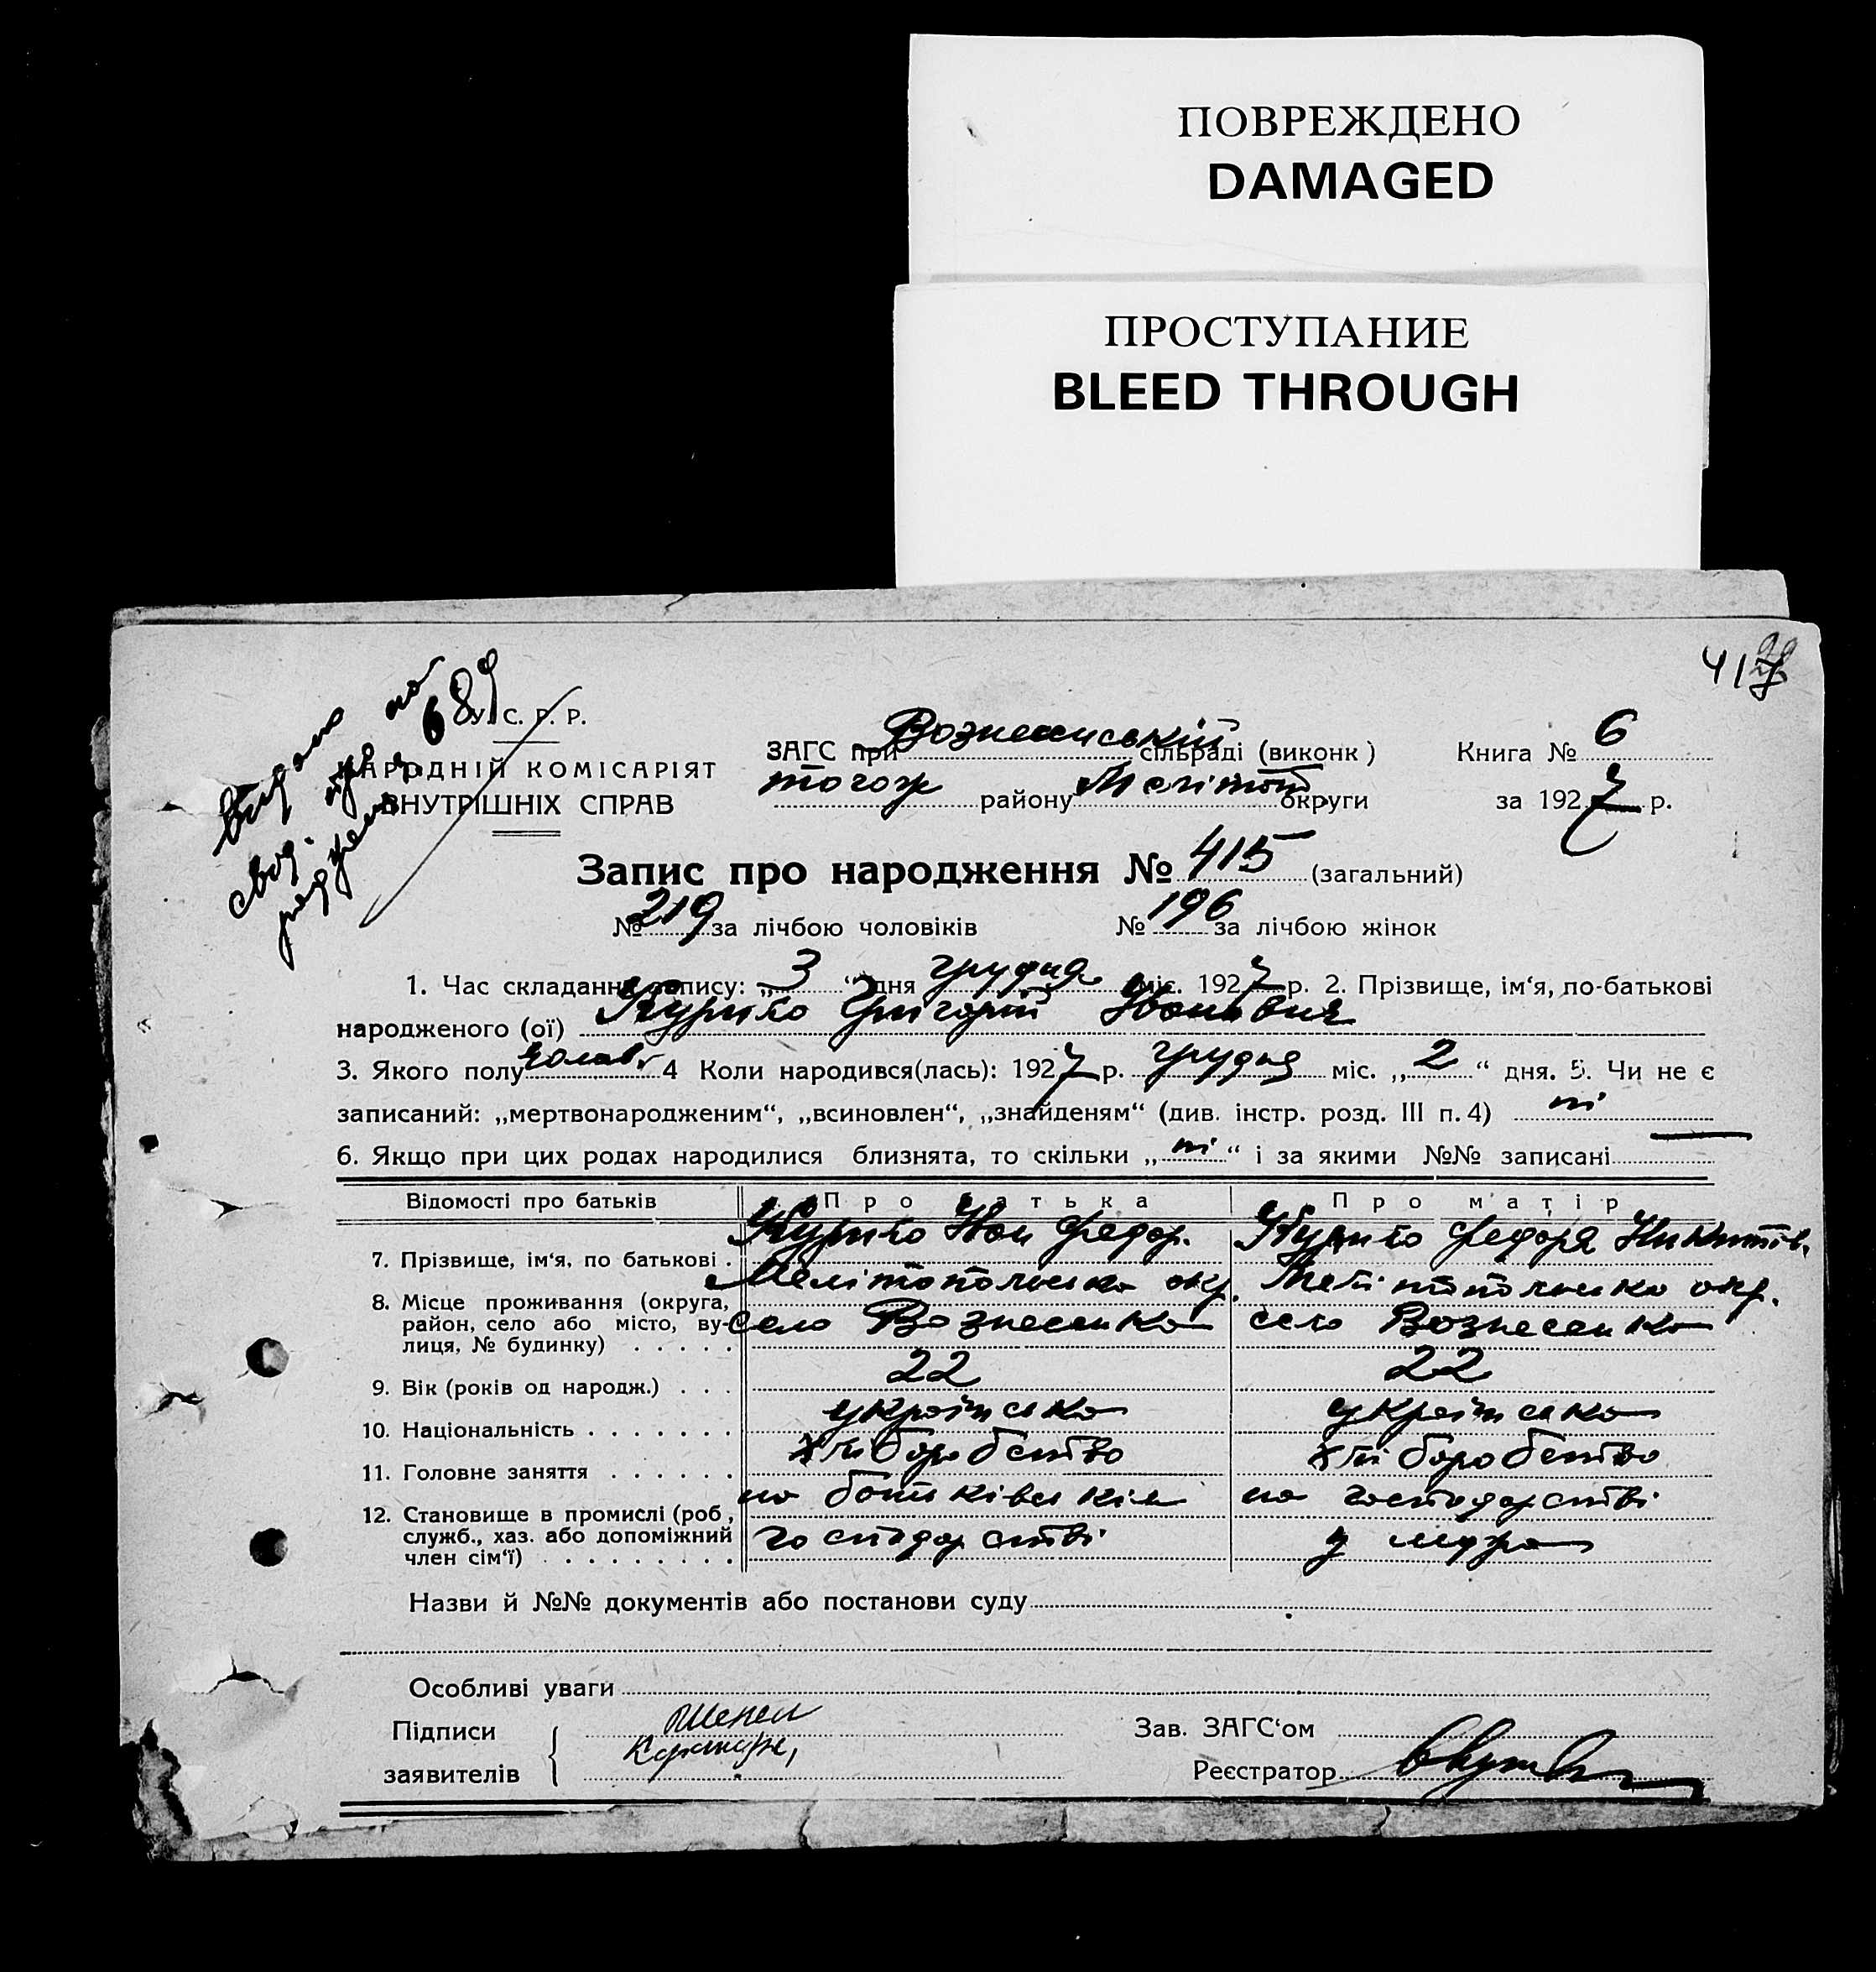 ПОВРЕЖДЕНО
DAMAGED
ПРОСТУПАНИЕ
BLEED THROUGH
видано на
689
У. С. Р. Р.
НАРОДНІЙ КОМІСАРІЯТ
ВНУТРІШНІХ СПРАВ
ЗАГС при Вознесенській сільраді (виконк) Книга № 6
тогож району Мелітоп округи за 1927 р.
Запис про народження № 415 (загальний)
№ 219 за лічбою чоловіків № 196 за лічбою жінок
1. Час складання запису: „3“ дня грудня міс. 1927 р. 2. Прізвище, ім‘я, по-батькові
народженого (ої) Григорій Іванович
3. Якого полу чолов. 4 Коли народився(лась): 1927 р. грудня міс. „2“ дня. 5. Чи не є
записаний: „мертвонародженим“, „всиновлен“, „знайденям“ (див. інстр. розд. III п. 4) ні
6. Якщо при цих родах народилися близнята, то скільки „ні“ і за якими №№ записані —
Відомості про батьків Про батька Про матір
7. Прізвище, ім‘я, по батькові . Іван Федор. Федора Никитів.
8. Місце проживання (округа, Мелітопольска окр. Мелітопольска окр.
район, село або місто, ву- село Вознесенка село Вознесенка
лиця, № будинку) . . . . .
9. Вік (років од народж.) . . . 22 22
10. Національність . . . . . . . українська українська
11. Головне заняття . . . . . . хліборобство хліборобство
12. Становище в промислі (роб, на батьківськім на господарстві
служб., хаз. або допоміжний господарстві у мужа
член сім‘ї) . . . . . . . . .
Назви й №№ документів або постанови суду
Особливі уваги
Підписи Зав. ЗАГС‘ом
заявителів Реєстратор